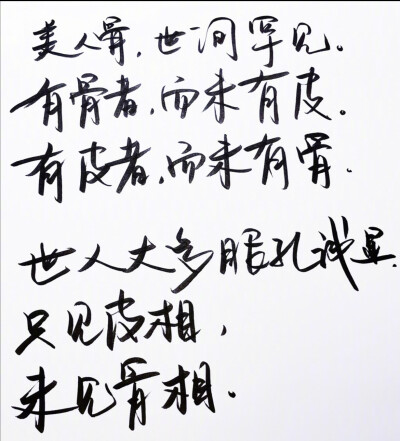 美人骨，世间罕见。
有骨者，而未有皮。
有皮者，而未有骨。
世人大多眼孔浅显，
只见皮相，
未见骨相。